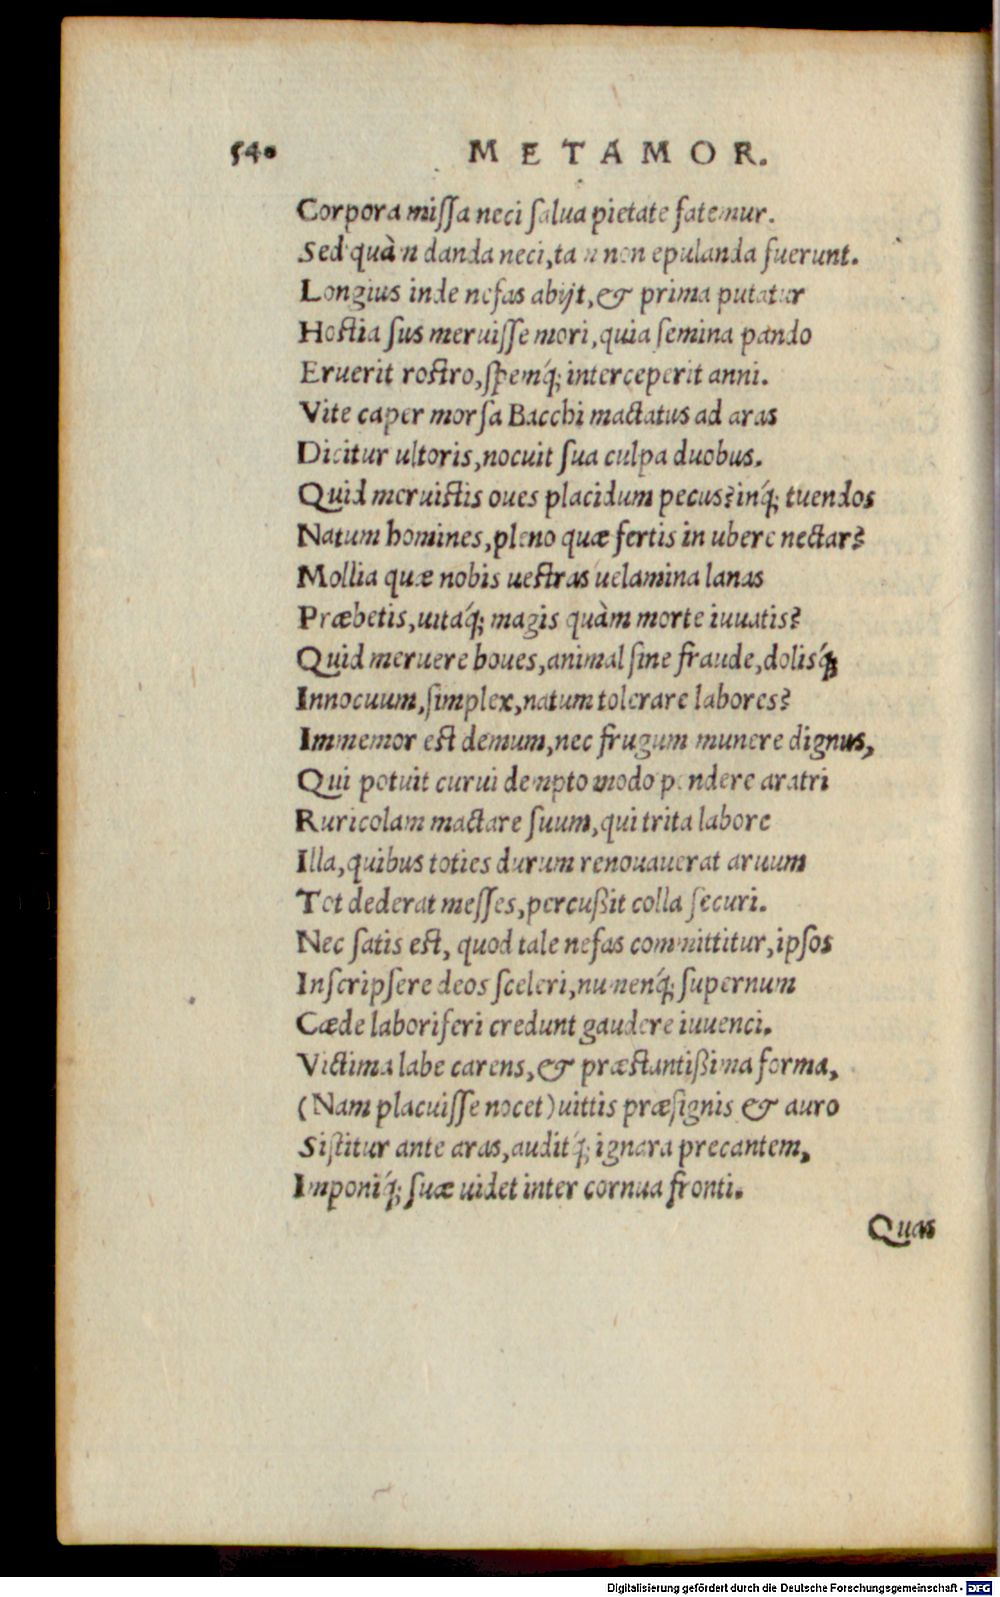 540 METAMOR.
Corpora miſſa neci ſalua pietate fatemur.
Sed quàm danda neci, tam non epulanda fuerunt.
Longius inde nefas abijt, & prima putatur
Hoſtia ſus meruiſſe mori, quia ſemina pando
Eruerit roſtro, ſpemq́; interceperit anni.
Vite caper morſa Bacchi mactatus ad aras
Dicitur ultoris, nocuit ſua culpa duobus.
Quid meruiſtis oues placidum pecus? inq́; tuendos
Natum homines, pleno quæ fertis in ubere nectar?
Mollia quæ nobis ueſtras uelamina lanas
Præbetis, uitaq́; magis quàm morte iuuatis?
Quid meruere boues, animal ſine fraude, dolisq́;
Innocuum, ſimplex, natum tolerare labores?
Immemor eſt demum, nec frugum munere dignus,
Qui potuit curui dempto modo pondere aratri
Ruricolam mactare ſuum, qui trita labore
Illa, quibus toties durum renouauerat aruum
Tot dederat meſſes, percußit colla ſecuri.
Nec ſatis eſt, quod tale nefas committitur, ipſos
Inſcripſere deos ſceleri, numenq́; ſupernum
Cæde laboriferi credunt gaudere iuuenci.
Victima labe carens, & præſtantißima forma,
(Nam placuiſſe nocet) uittis præſignis & auro
Siſtitur ante aras, auditq́; ignara precantem,
Imponiq́; ſuæ uidet inter cornua fronti.
Quas
Digitalisierung gefördert durch die Deutsche Forschungsgemeinschaft - DFG